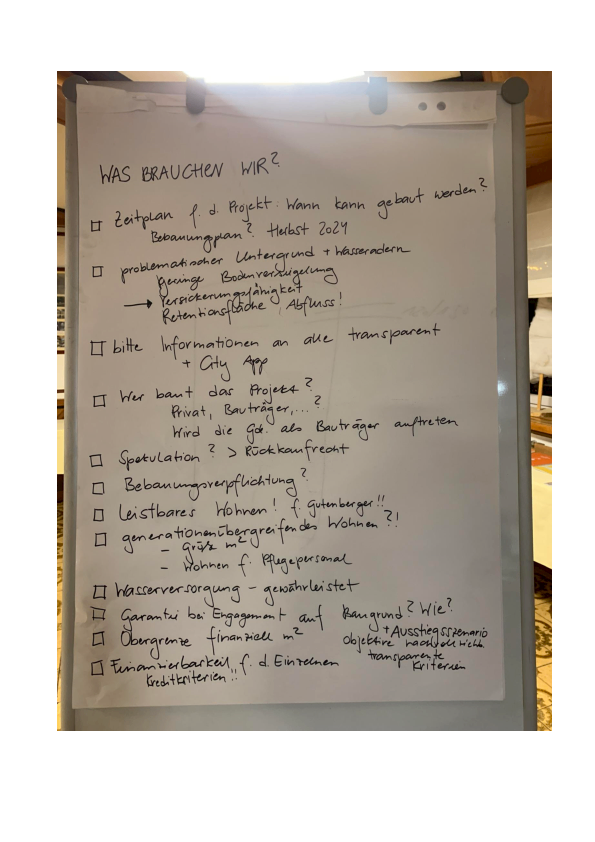 WAS BRAUCHEN WIR?
Zeitplan f. d. Projekt: Wann kann gebaut werden?
Bebauungsplan? Herbst 2024
problematischer Untergrund + Wasseradern
geringe Bodenversiegelung
→ Versickerungsfähigkeit
Retentionsfläche, Abfluss!
bitte Informationen an alle transparent
+ City App
Wer baut das Projekt?
Privat, Bauträger,...?
Wird die Gde. als Bauträger auftreten
Spekulation? > Rückkaufrecht
Bebauungsverpflichtung?
leistbares Wohnen! f. Gutenberger!!
generationenübergreifendes Wohnen?!
- m²
- Wohnen f. Pflegepersonal
Wasserversorgung - gewährleistet
Garantie bei Engagement auf Baugrund? Wie?
+ Ausstiegsszenario
Obergrenze finanziell m²
objektive
transparente
Kriterien
Finanzierbarkeit f. d. Einzelnen
Kreditkriterien!!